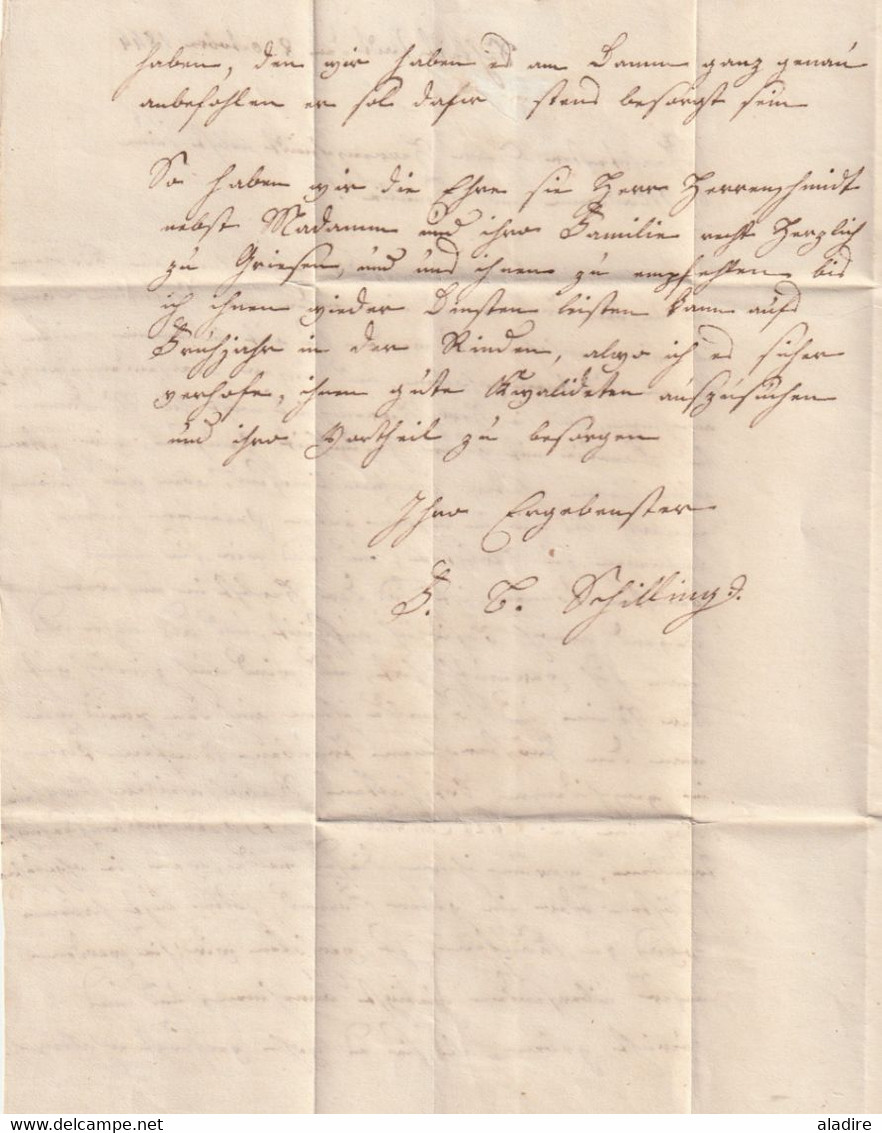 haben, den wir haben es am Damm ganz genau
anbefohlen er sol dafir stens besorgt sein
So haben wir die Ehre sie Herr Herrenschmidt
nebst Madamm und ihro Familie recht Herzlich
zu Griesen, und uns ihnen zu empfehlen bis
ich ihnen wieder Dinsten leisten kann aufs
Frühjahr in der Rinden, alwo ich es sicher
verhofe, ihnen gute Kwalideten auszusuchen
und ihro Vortheil zu besorgen
Ihro Ergebenster
F. C. Schilling
aladire